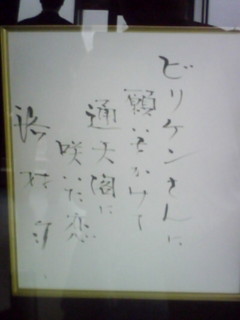 ビリケンさんに
願いをかけて
通天閣に
咲いた恋